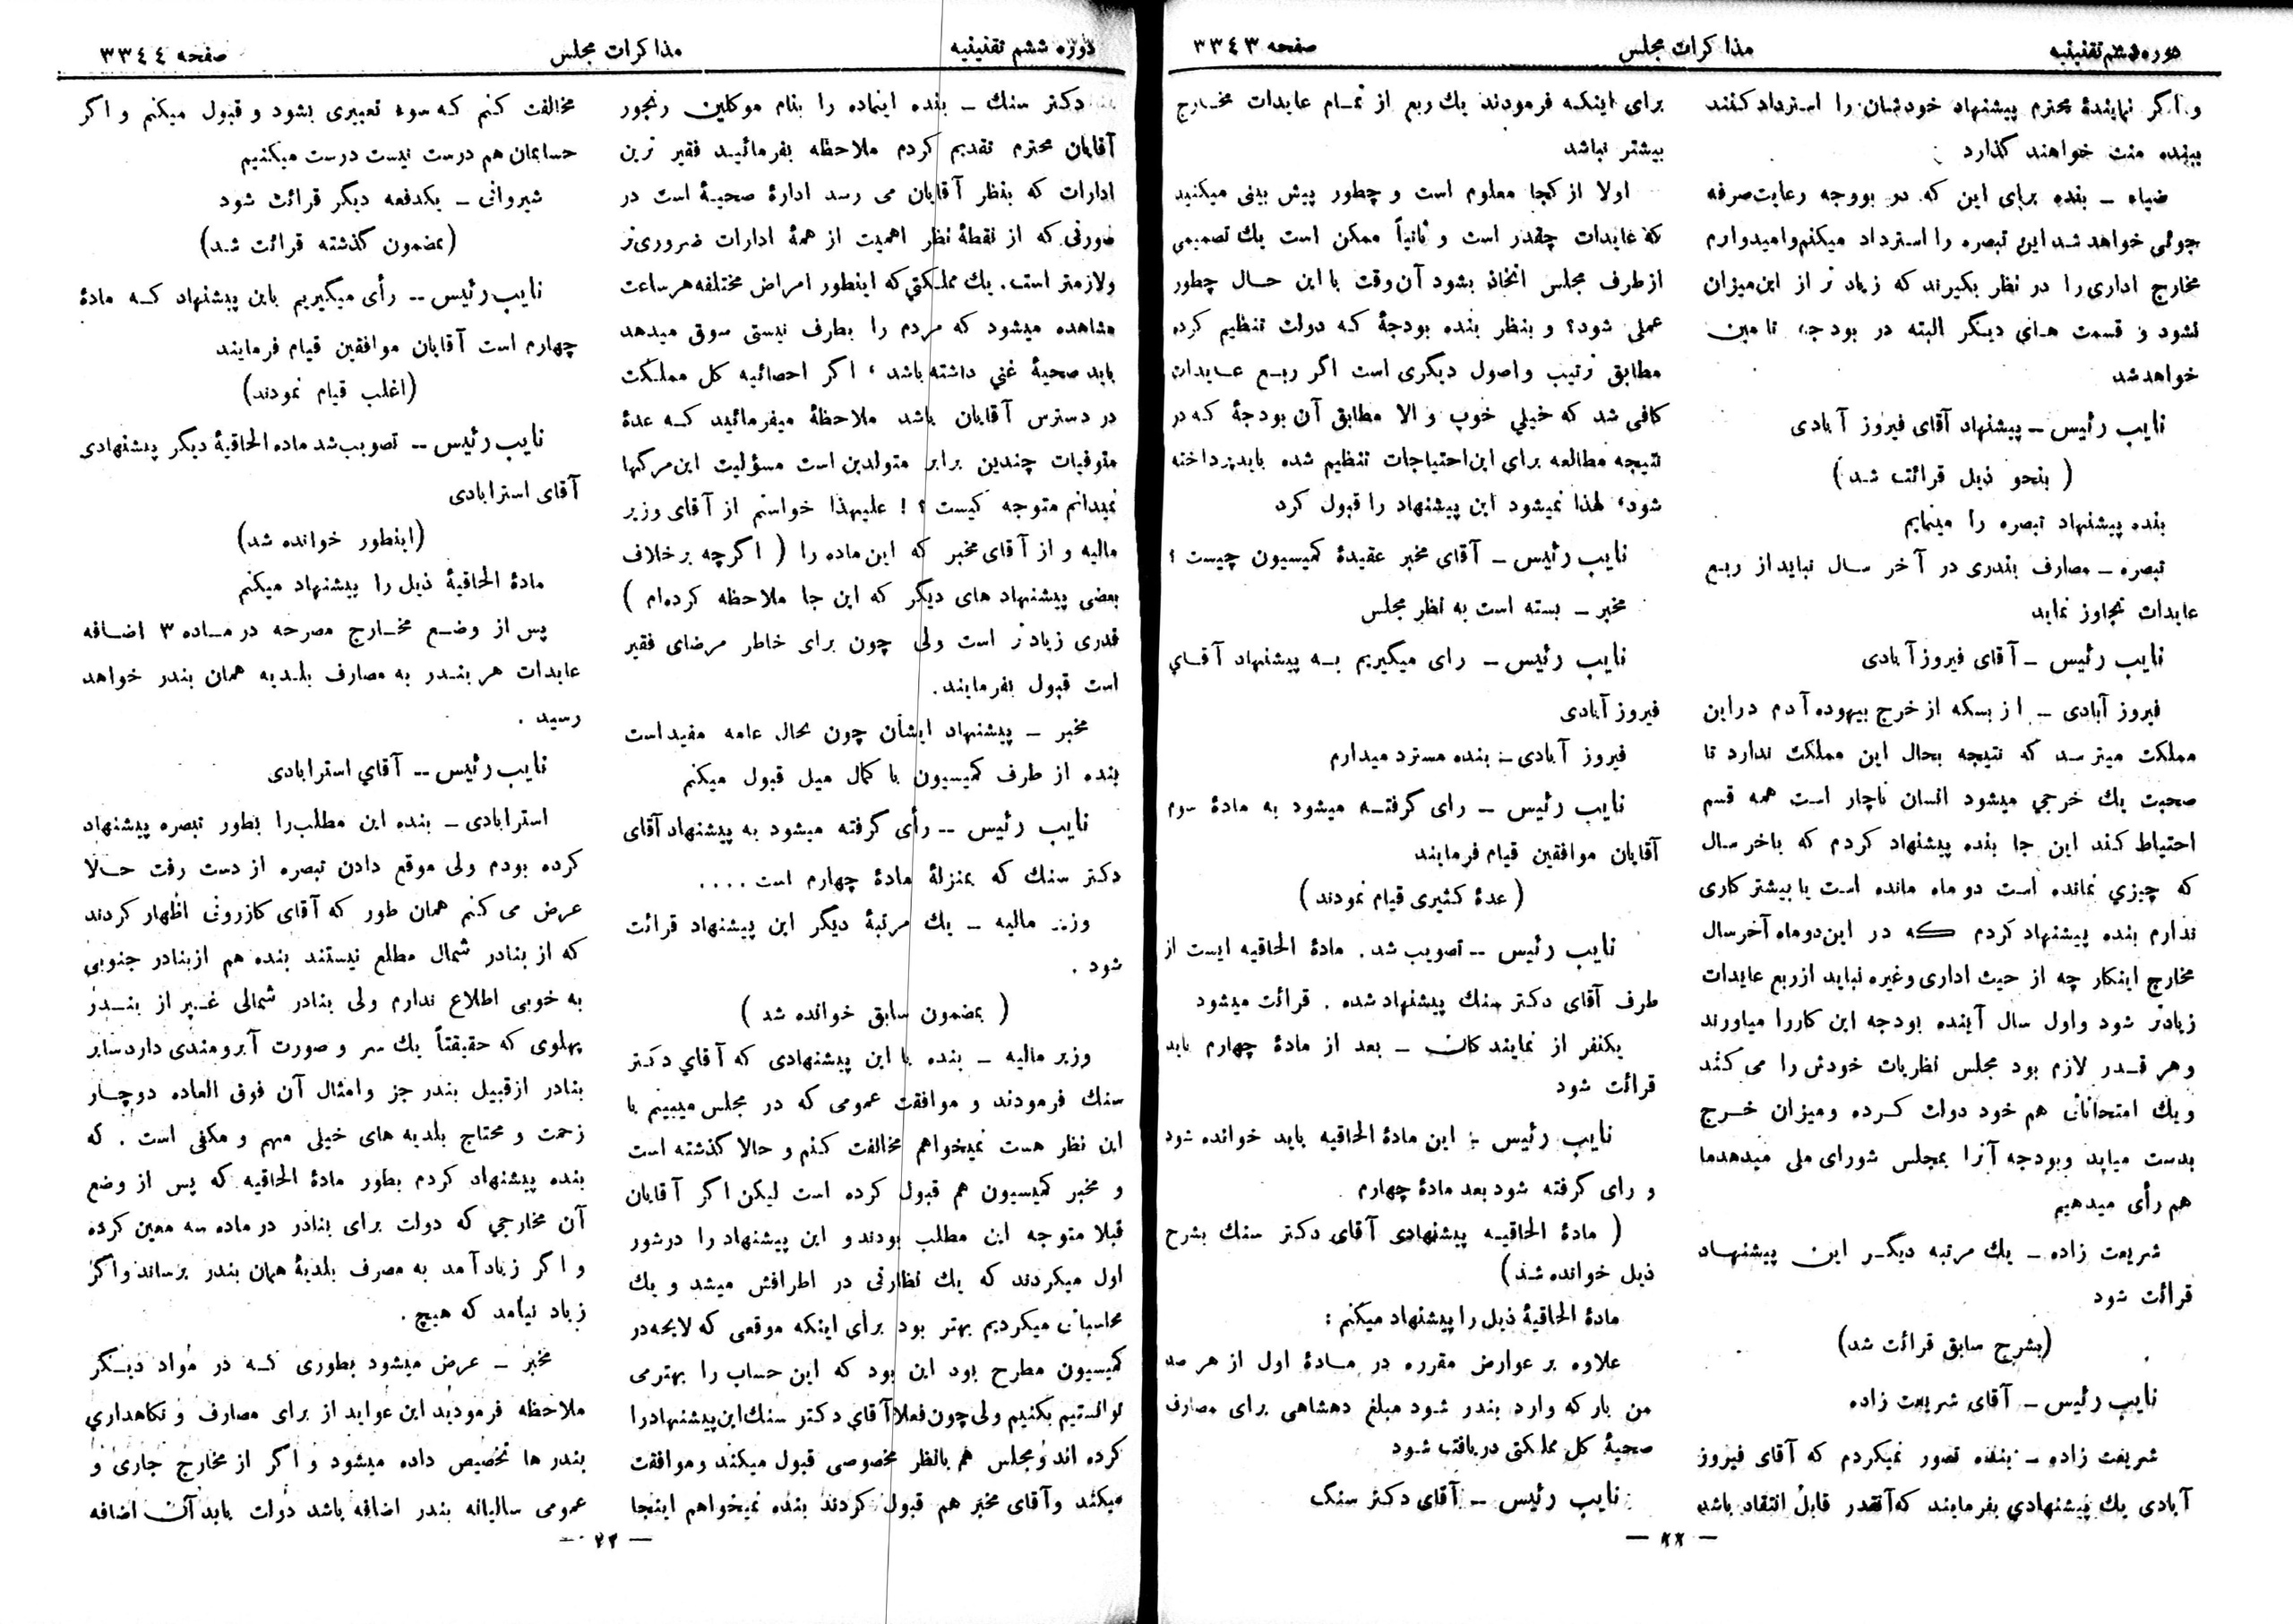 دوره ششم تقنینیه
مذاکرات مجلس
صفحه ۳۳٤۳
و اگر نمایندهٔ محترم پیشنهاد خودشان را استرداد کنند
ببنده منت خواهند گذارد
ضیاء ـ بنده برای این که در بودجه رعایت صرفه
جوئی خواهد شد این تبصره را استرداد میکنم و امیدوارم
مخارج اداری را در نظر بگیرند که زیاد تر از این میزان
نشود و قسمت های دیگر البته در بودجه تامین
خواهد شد
نایب رئیس ـ پیشنهاد آقای فیروز آبادی
( بنحو ذیل قرائت شد )
بنده پیشنهاد تبصره را مینمایم
تبصره ـ مصارف بندری در آخر سال نباید از ربع
عایدات تجاوز نماید
نایب رئیس ـ آقای فیروز آبادی
فیروز آبادی ـ از بسکه از خرج بیهوده آدم در این
مملکت میترسد که نتیجه بحال این مملکت ندارد تا
صحبت یك خرجی میشود انسان ناچار است همه قسم
احتیاط کند این جا بنده پیشنهاد کردم که باخر سال
که چیزی نمانده است دو ماه مانده است یا بیشتر کاری
ندارم بنده پیشنهاد کردم که در این دو ماه آخر سال
مخارج اینکار چه از حیث اداری و غیره نباید از ربع عایدات
زیادتر شود و اول سال آینده بودجه این کار را میاورند
و هر قدر لازم بود مجلس نظریات خودش را می کند
و یك امتحاناتی هم خود دولت کرده و میزان خرج
بدست میاید و بودجه آنرا بمجلس شورای ملی میدهد ما
هم رأی میدهیم
شریعت زاده ـ یك مرتبه دیگر این پیشنهاد
قرائت شود
(بشرح سابق قرائت شد)
نایب رئیس ـ آقای شریعت زاده
شریعت زاده ـ بنده تصور نمیکردم که آقای فیروز
آبادی یك پیشنهادی بفرمایند که آنقدر قابل انتقاد باشد
برای اینکه فرمودند یك ربع از تمام عایدات مخارج
بیشتر نباشد
اولا از کجا معلوم است و چطور پیش بینی میکنید
که عایدات چقدر است و ثانیاً ممکن است یك تصمیمی
از طرف مجلس اتخاذ بشود آن وقت با این حال چطور
عملی شود؟ و بنظر بنده بودجهٔ که دولت تنظیم کرده
مطابق ترتیب و اصول دیگری است اگر ربع عایدات
کافی شد که خیلی خوب و الا مطابق آن بودجهٔ که در
نتیجه مطالعه برای این احتیاجات تنظیم شده باید پرداخته
شود، لهذا نمیشود این پیشنهاد را قبول کرد
نایب رئیس ـ آقای مخبر عقیدهٔ کمیسیون چیست ؟
مخبر ـ بسته است به نظر مجلس
نایب رئیس ـ رای میگیریم به پیشنهاد آقای
فیروز آبادی
فیروز آبادی ـ بنده مسترد میدارم
نایب رئیس ـ رای گرفته میشود به مادهٔ سوم
آقایان موافقین قیام فرمایند
( عدهٔ کثیری قیام نمودند )
نایب رئیس ـ تصویب شد . مادهٔ الحاقیه ایست از
طرف آقای دکتر سنك پیشنهاد شده . قرائت میشود
یکنفر از نمایندکان ـ بعد از مادهٔ چهارم باید
قرائت شود
نایب رئیس ـ این مادهٔ الحاقیه باید خوانده شود
و رای گرفته شود بعد مادهٔ چهارم
( مادهٔ الحاقیه پیشنهادی آقای دکتر سنك بشرح
ذیل خوانده شد)
مادهٔ الحاقیهٔ ذیل را پیشنهاد میکنم :
علاوه بر عوارض مقرره در مادهٔ اول از هر صد
من بار که وارد بندر شود مبلغ دهشاهی برای مصارف
صحیهٔ کل مملکتی دریافت شود
نایب رئیس ـ آقای دکتر سنگ
ـ ۲۲ ـ
دوره ششم تقنینیه
مذاکرات مجلس
صفحه ۳۳٤٤
دکتر سنك ـ بنده اینماده را بنام موکلین رنجور
آقایان محترم تقدیم کردم ملاحظه بفرمائید فقیر ترین
ادارات که بنظر آقایان می رسد ادارهٔ صحیهٔ است در
صورتی که از نقطهٔ نظر اهمیت از همهٔ ادارات ضروری تر
و لازمتر است . یك مملکتی که اینطور امراض مختلفه هر ساعت
مشاهده میشود که مردم را بطرف نیستی سوق میدهد
باید صحیهٔ غنی داشته باشد ، اگر احصائیه کل مملکت
در دسترس آقایان باشد ملاحظهٔ میفرمائید که عدهٔ
متوفیات چندین برابر متولدین است مسؤلیت این مرکها
نمیدانم متوجه کیست ؟ ! علیهذا خواستم از آقای وزیر
مالیه و از آقای مخبر که این ماده را ( اگرچه بر خلاف
بعضی پیشنهاد های دیگر که این جا ملاحظه کرده‌ام )
قدری زیاد تر است ولی چون برای خاطر مرضای فقیر
است قبول بفرمایند .
مخبر ـ پیشنهاد ایشان چون بحال عامه مفید است
بنده از طرف کمیسیون با کمال میل قبول میکنم
نایب رئیس ـ رأی گرفته میشود به پیشنهاد آقای
دکتر سنك که بمنزلهٔ مادهٔ چهارم است ....
وزیر مالیه ـ یك مرتبهٔ دیگر این پیشنهاد قرائت
شود .
( بمضمون سابق خوانده شد )
وزیر مالیه ـ بنده با این پیشنهادی که آقای دکتر
سنك فرمودند و موافقت عمومی که در مجلس میبینم با
این نظر هست نمیخواهم مخالفت کنم و حالا گذشته است
و مخبر کمیسیون هم قبول کرده است لیکن اگر آقایان
قبلا متوجه این مطلب بودند و این پیشنهاد را در شور
اول میکردند که یك نظارتی در اطرافش میشد و یك
محاسباتی میکردیم بهتر بود برای اینکه موقعی که لایحه در
کمیسیون مطرح بود این بود که این حساب را بهتر می
توانستیم بکنیم ولی چون فعلا آقای دکتر سنك این پیشنهاد را
کرده اند و مجلس هم بانظر مخصوصی قبول میکند و موافقت
میکند و آقای مخبر هم قبول کردند بنده نمیخواهم اینجا
مخالفت کنم که سوء تعبیری بشود و قبول میکنم و اگر
حسابمان هم درست نیست درست میکنیم
شیروانی ـ یکدفعه دیگر قرائت شود
(بمضمون گذشته قرائت شد)
نایب رئیس ـ رأی میگیریم باین پیشنهاد که مادهٔ
چهارم است آقایان موافقین قیام فرمایند
(اغلب قیام نمودند)
نایب رئیس ـ تصویب شد ماده الحاقیهٔ دیگر پیشنهادی
آقای استرابادی
(اینطور خوانده شد)
مادهٔ الحاقیهٔ ذیل را پیشنهاد میکنم
پس از وضع مخارج مصرحه در ماده ۳ اضافه
عایدات هر بندر به مصارف بلدیه همان بندر خواهد
رسید .
نایب رئیس ـ آقای استرابادی
استرابادی ـ بنده این مطلب را بطور تبصره پیشنهاد
کرده بودم ولی موقع دادن تبصره از دست رفت حالا
عرض می کنم همان طور که آقای کازرونی اظهار کردند
که از بنادر شمال مطلع نیستند بنده هم از بنادر جنوبی
به خوبی اطلاع ندارم ولی بنادر شمالی غیر از بندر
پهلوی که حقیقتاً یك سر و صورت آبرومندی دارد سایر
بنادر از قبیل بندر جز و امثال آن فوق العاده دوچار
زحمت و محتاج بلدیه های خیلی مهم و مکفی است . که
بنده پیشنهاد کردم بطور مادهٔ الحاقیه که پس از وضع
آن مخارجی که دولت برای بنادر در ماده سه معین کرده
و اگر زیاد آمد به مصرف بلدیهٔ همان بندر برساند و اگر
زیاد نیامد که هیچ .
مخبر ـ عرض میشود بطوری که در مواد دیگر
ملاحظه فرمودید این عواید از برای مصارف و نگاهداری
بندر ها تخصیص داده میشود و اگر از مخارج جاری و
عمومی سالیانه بندر اضافه باشد دولت باید آن اضافه
ـ ۲۲ ـ